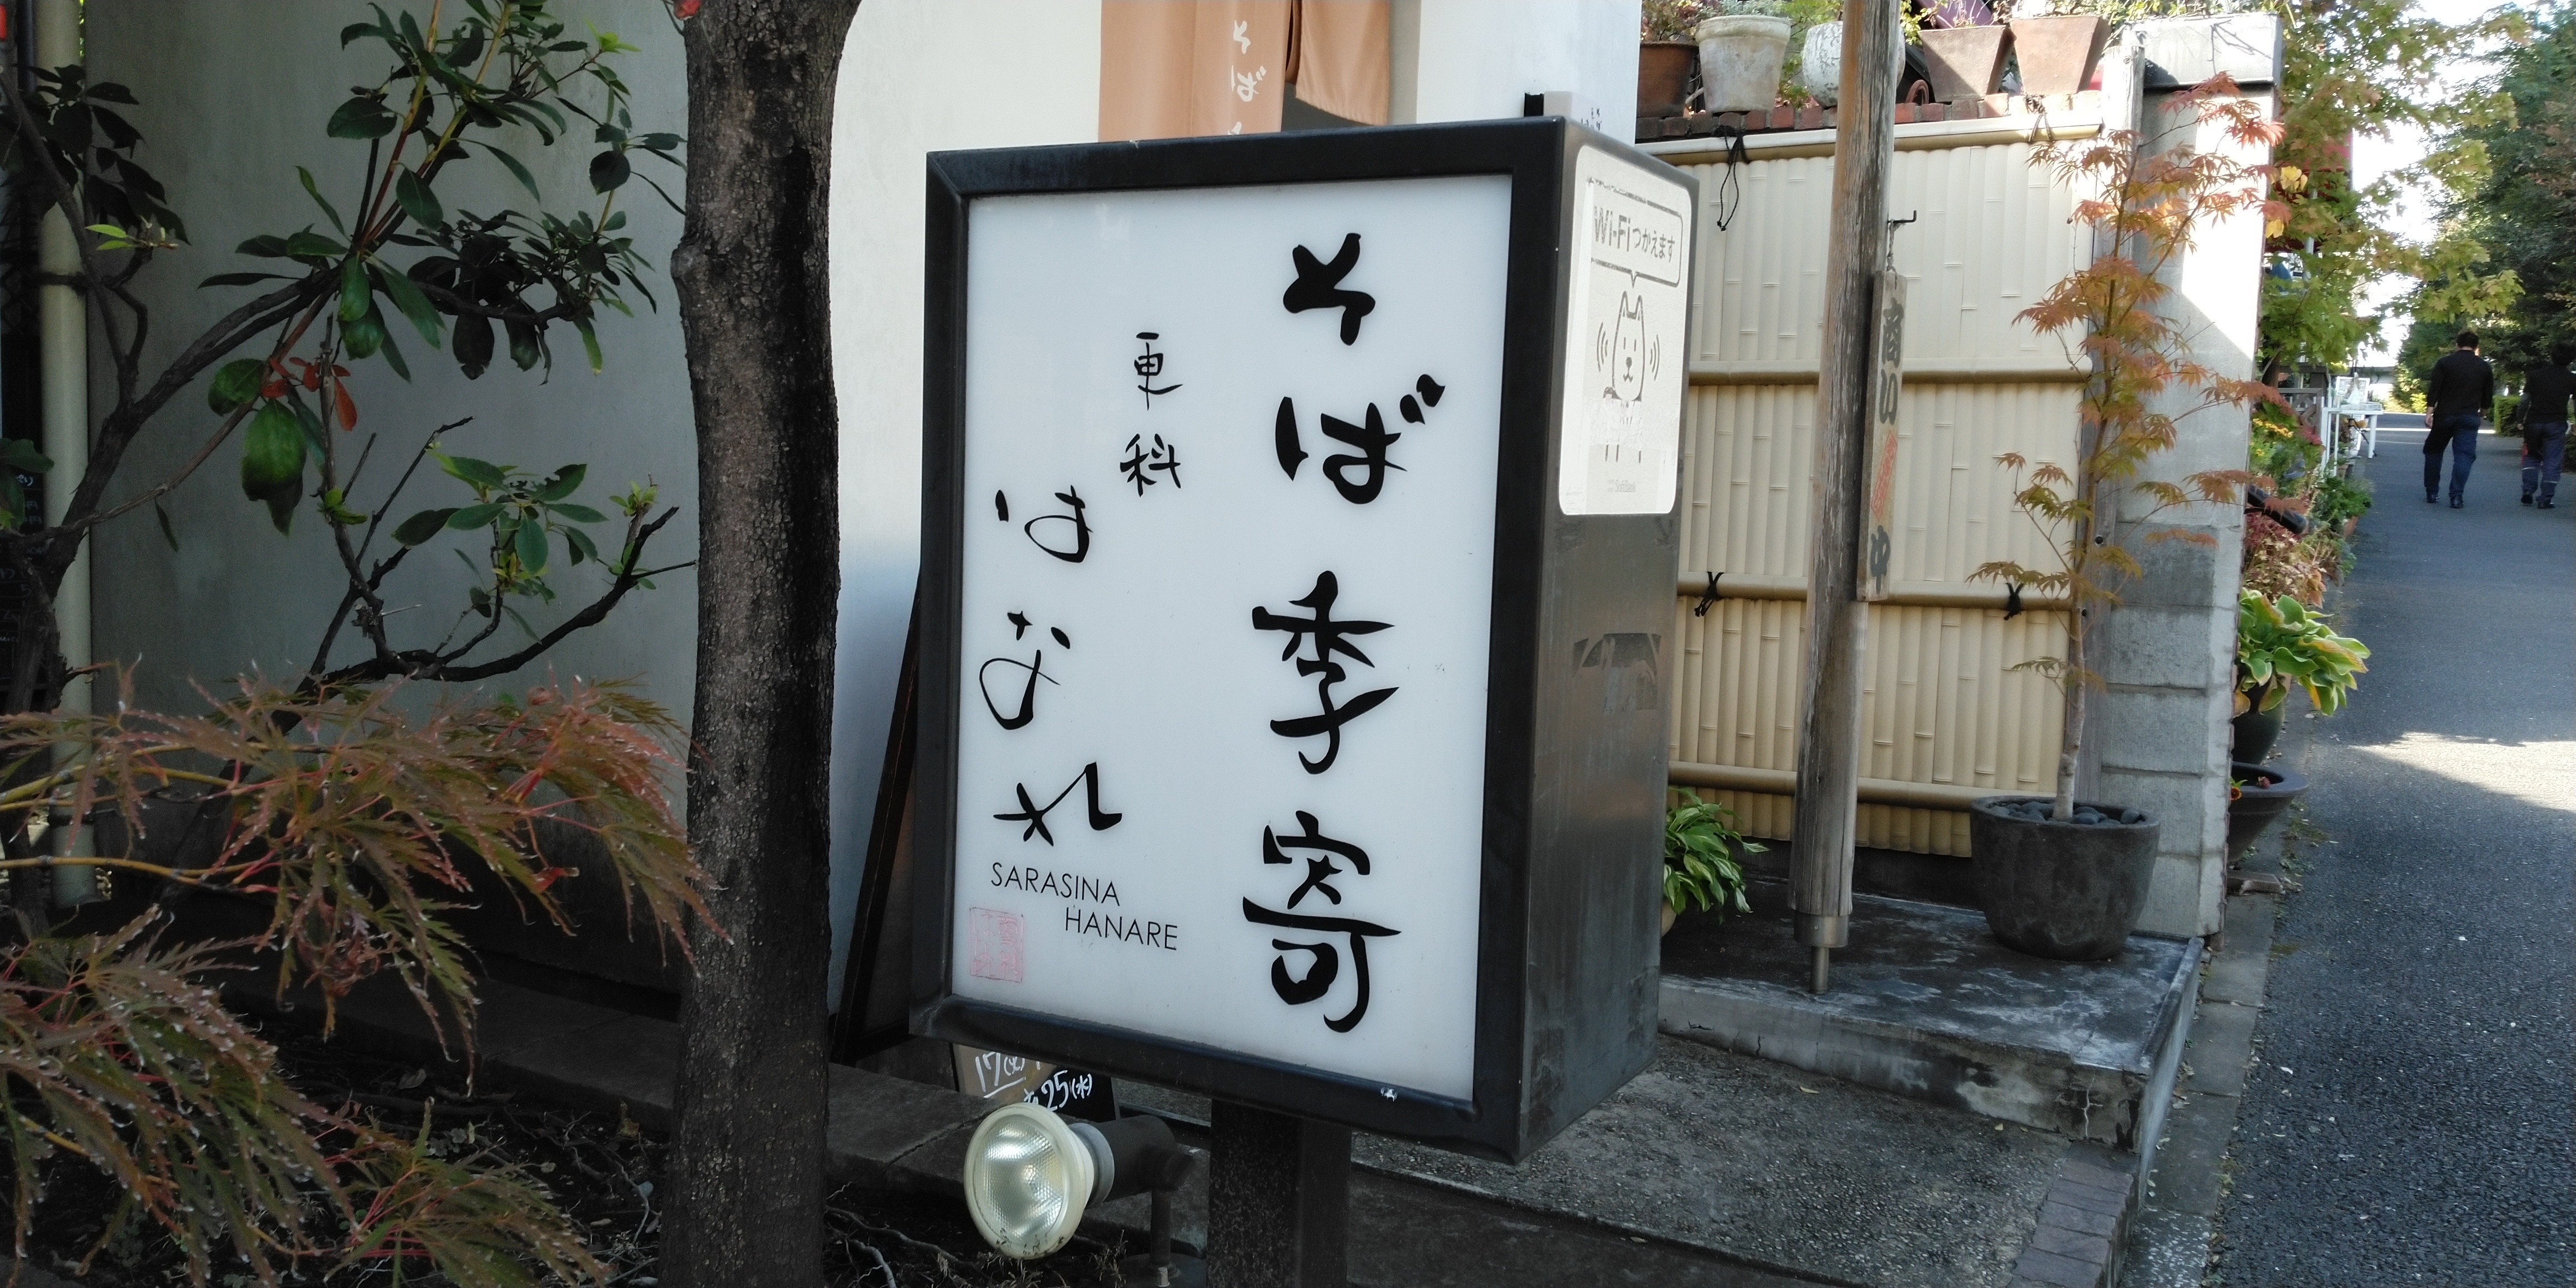 そば季寄
更科
はなれ
SARASINA
HANARE
そば
Wi-Fiつかえます
SoftBank
商い中
17(火)
25(水)